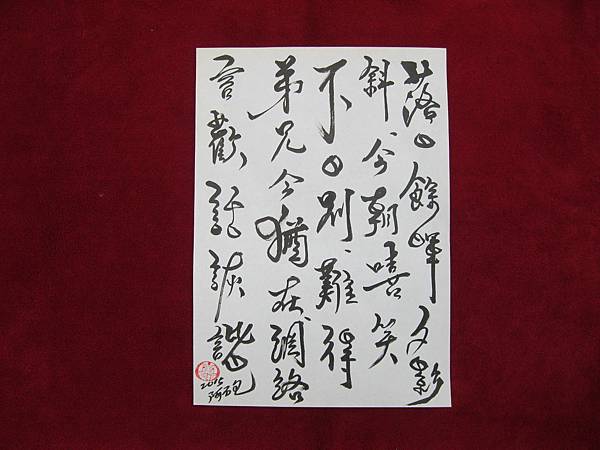 落日餘暉夕影
斜今朝嘻笑
不日別難得
弟兄今猶在網路
言歡話詼諧
2015